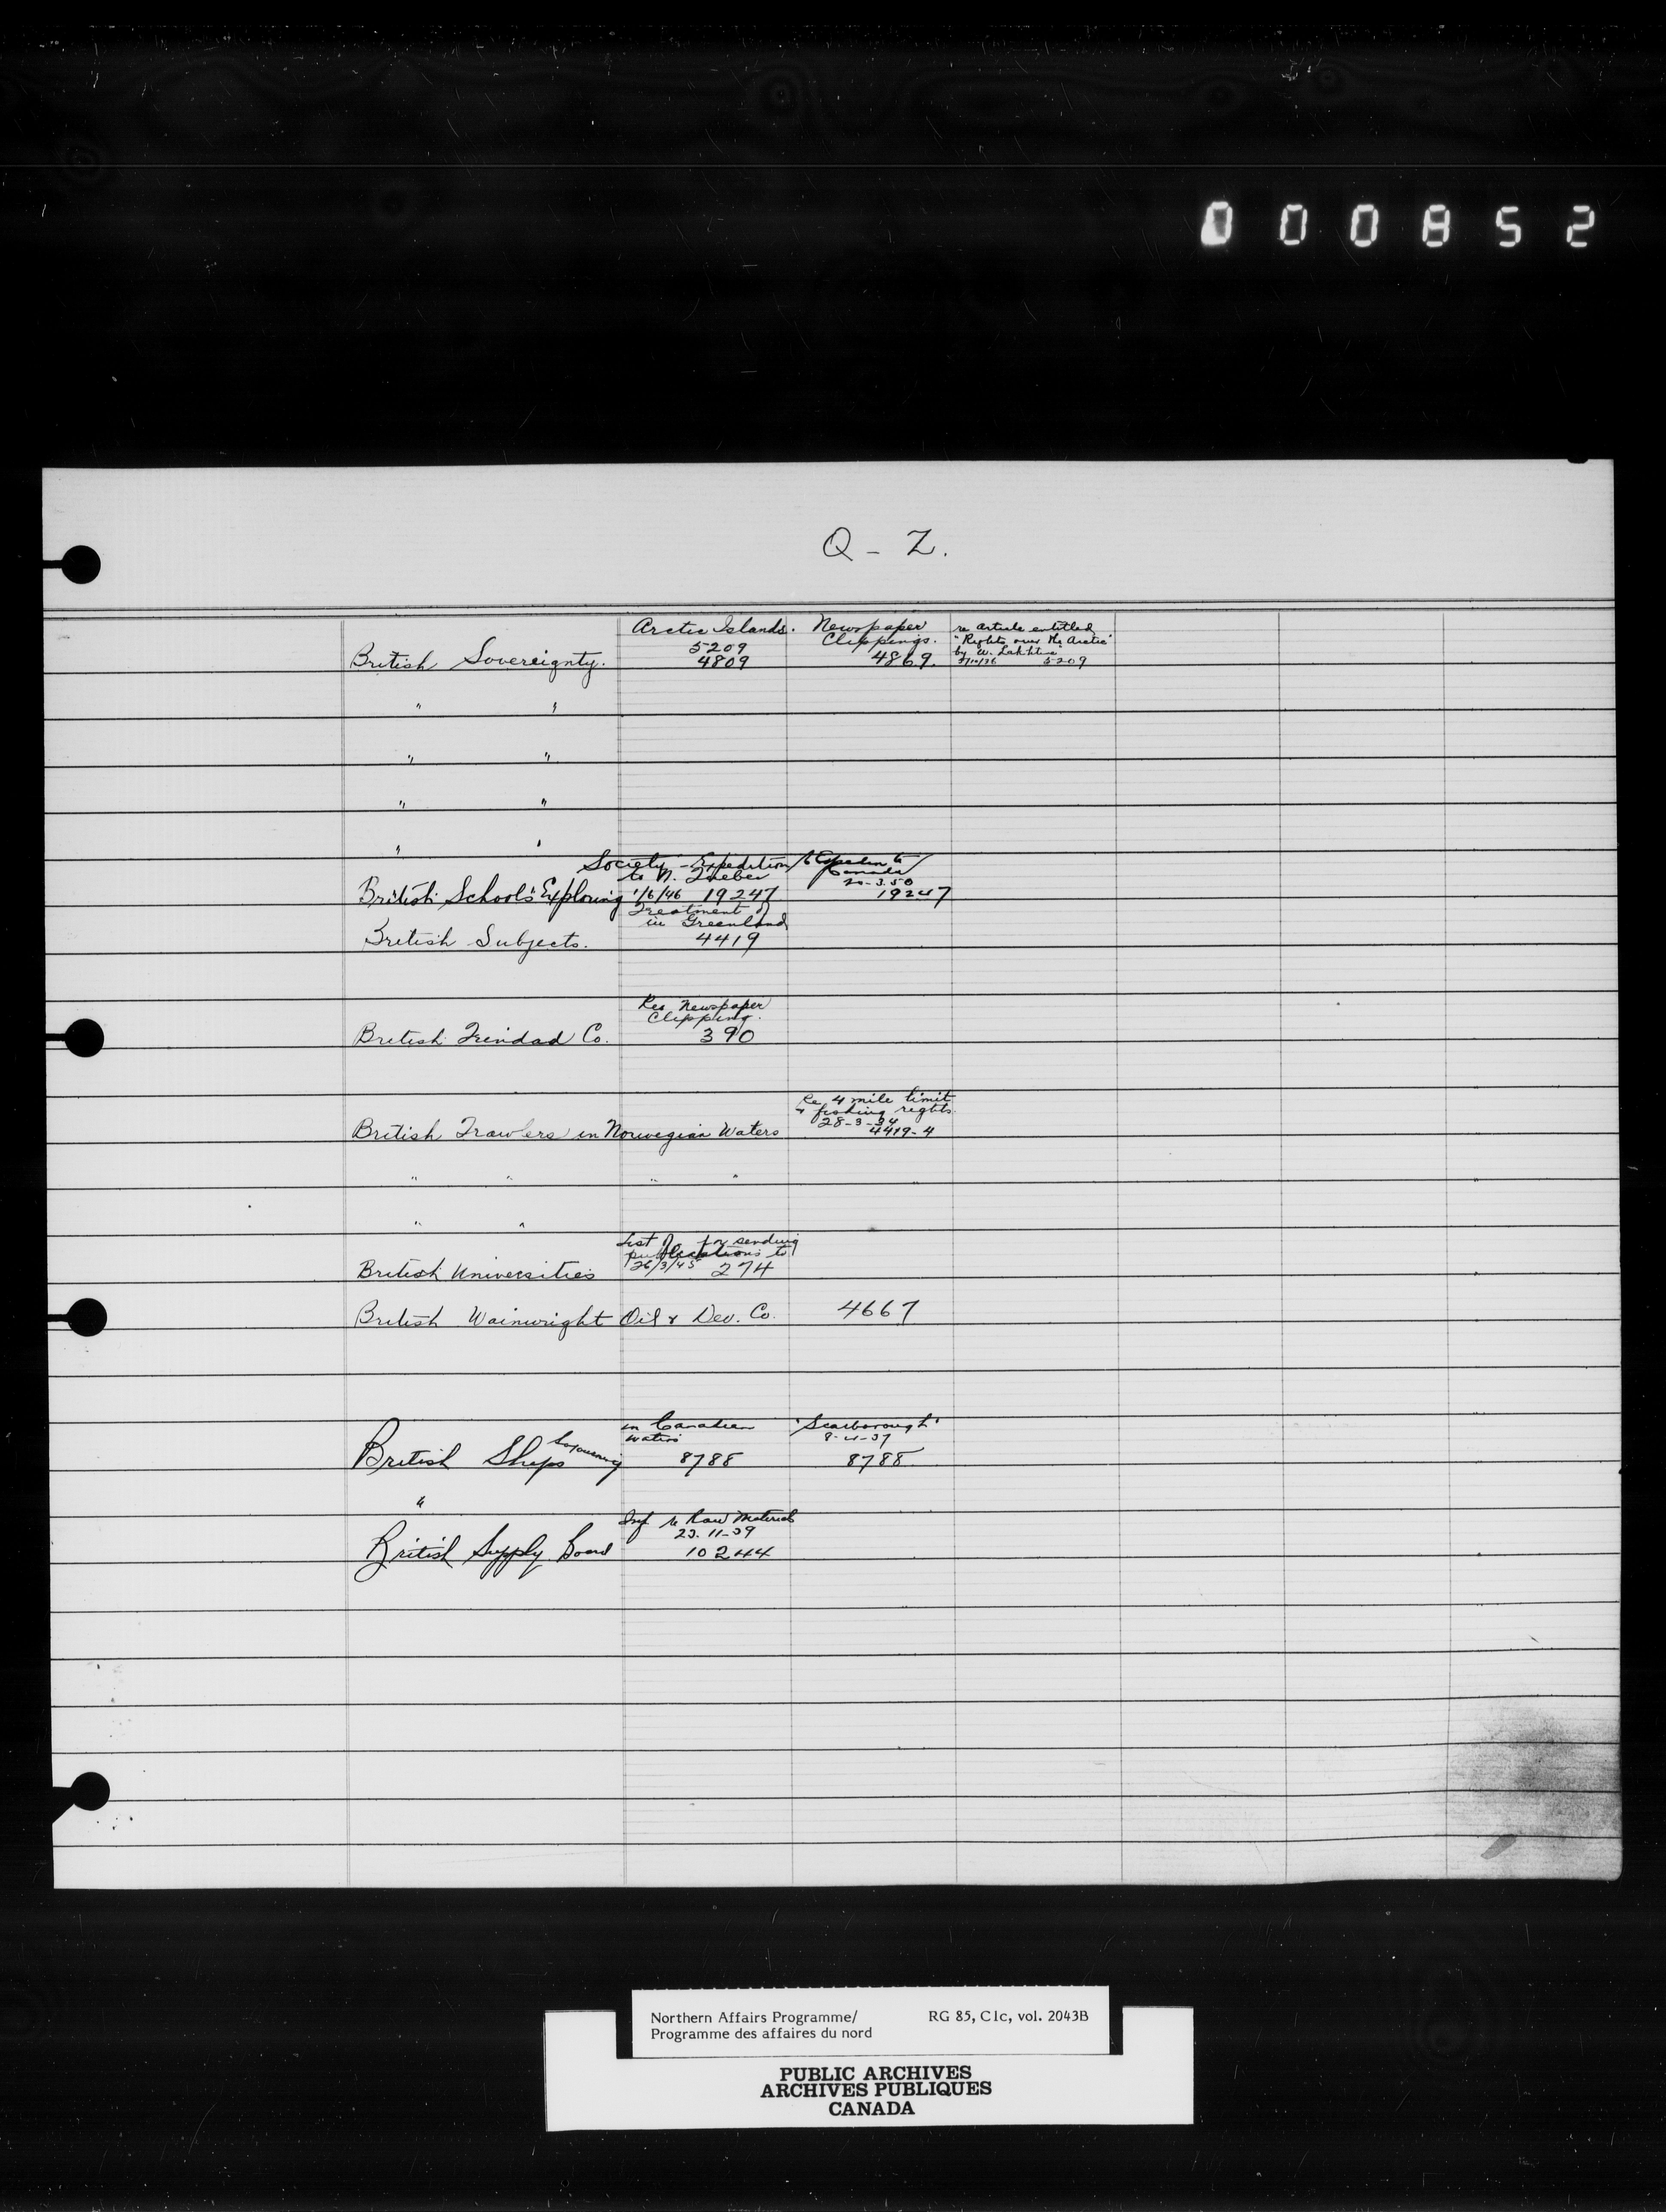 000852
Q - Z.
Arctic Islands. Newspaper Clippings. re article entitled
"Rights over the Arctic"
by W. Lakhtine
British Sovereignty. 5209 4809 4869. 5209
" "
" "
" "
" "
Society - Expedition
to N. Quebec
Canada
20-3-50
British Schools' Exploring 1/6/46 19247 19247
Treatment of
in Greenland
British Subjects. 4419
Re Newspaper
Clipping.
British Trinidad Co. 390
Re 4 mile limit
& fishing rights.
28-3-34
British Trawlers in Norwegian Waters 4419-4
" " " "
" "
List of for sending
publications to
British Universities 26/3/45 274
British Wainwright Oil & Dev. Co. 4667
in Canadian
waters
"Scarborough"
British Ships Sojourning 8788 8788
"
Inf re Raw Material
23-11-39
British Supply Board 10244
Northern Affairs Programme/ RG 85, C1c, vol. 2043B
Programme des affaires du nord
PUBLIC ARCHIVES
ARCHIVES PUBLIQUES
CANADA